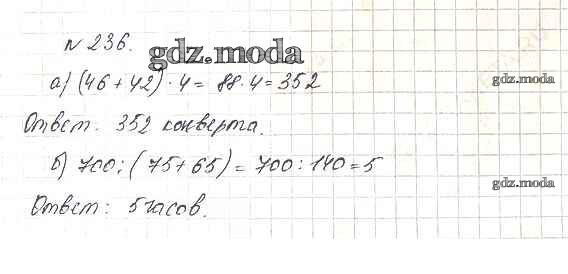 № 236.
gdz.moda
а) (46 + 42) · 4 = 88 · 4 = 352
gdz.moda
Ответ: 352 конверта.
б) 700 : (75 + 65) = 700 : 140 = 5
gdz.moda
Ответ: 5 часов.